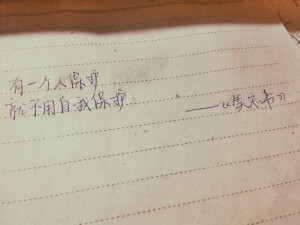 有一个人保护
就不用自我保护 ——《笑忘书》